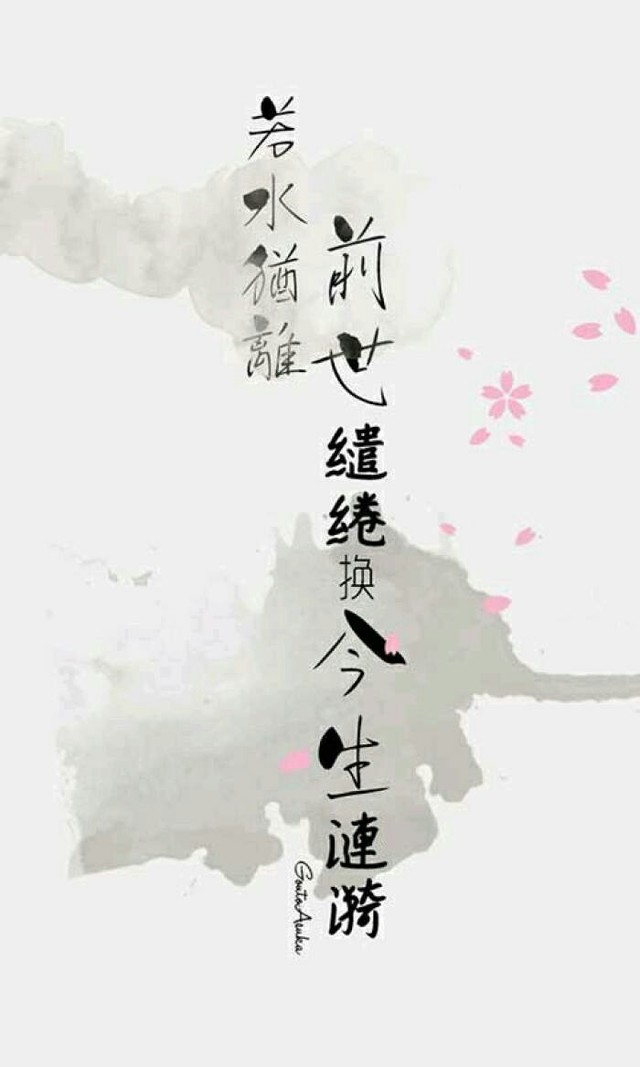 前世繾綣换今生漣漪
若水猶離
GoutoAsuka